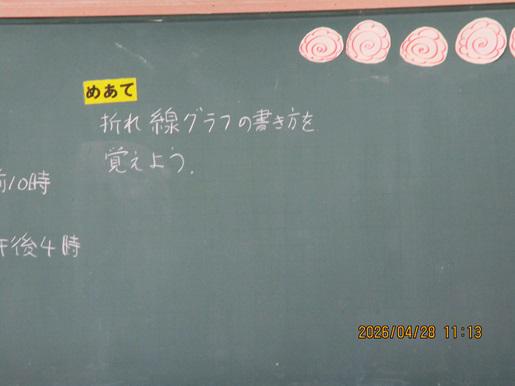 めあて
折れ線グラフの書き方を
覚えよう.
前10時
午後4時
2026/04/28 11:13